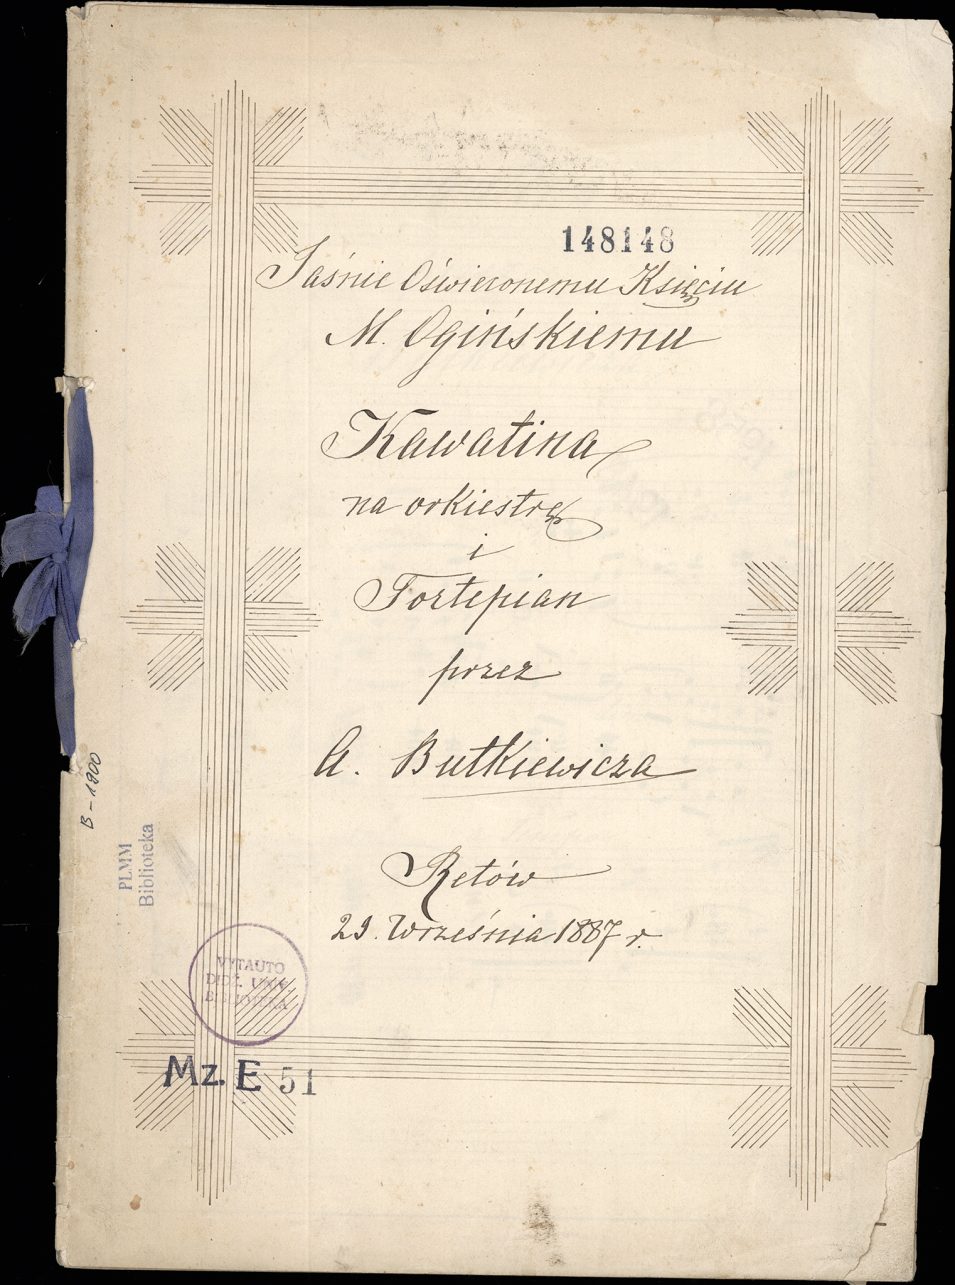 148148
Jaśnie Oświeconemu Księciu
M. Ogińskiemu
Kawatina
na orkiestrę
i
Fortepian
przez
A. Butkiewicza
Retów
29. Września 1887 r.
B-1900
PLMM
Biblioteka
VYTAUTO
DIDŽ. UNIV.
BIBLIOTEKA
Mz. E 51